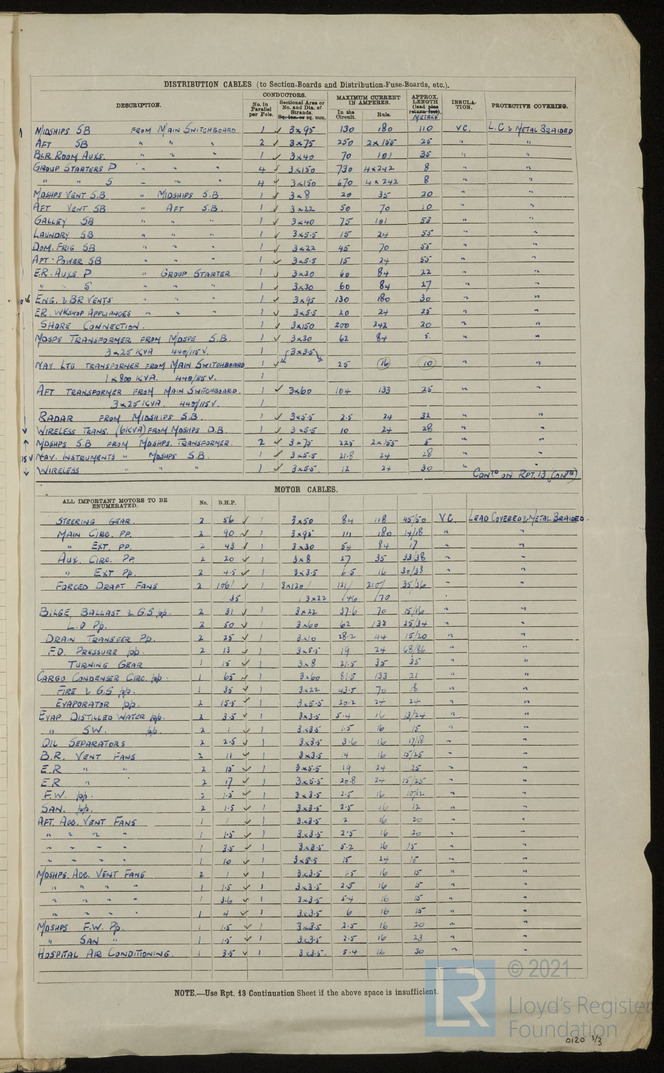 DISTRIBUTION CABLES (to Section-Boards and Distribution-Fuse-Boards, etc.).
DESCRIPTION. CONDUCTORS. No. in Parallel per Pole. Sectional Area or No. and Dia. of Strands. MAXIMUM CURRENT IN AMPERES. In the Circuit. Rule. APPROX. LENGTH METRES INSULATION. PROTECTIVE COVERING.
MIDSHIPS SB FROM MAIN SWITCHBOARD. 1 ✓ 3×95 130 180 110 V.C. L.C. & METAL BRAIDED
AFT SB " " " 2 ✓ 3×75 250 2×155 25 " "
BLR ROOM AUXS. " " " 1 ✓ 3×40 70 101 35 " "
GROUP STARTERS P " " " 4 ✓ 3×150 730 4×242 8 " "
" " S " " " 4 ✓ 3×150 670 4×242 8 " "
MDSHPS VENT S.B. " MIDSHIPS S.B. 1 ✓ 3×8 20 35 20 " "
AFT VENT SB " AFT S.B. 1 ✓ 3×22 50 70 10 " "
GALLEY SB " " " 1 ✓ 3×40 75 101 53 " "
LAUNDRY SB " " " 1 ✓ 3×5.5 15 24 55 " "
DOM. FRIG SB " " " 1 ✓ 3×22 45 70 55 " "
AFT. POWER SB " " " 1 ✓ 3×5.5 15 24 55 " "
E.R. AUXS P " GROUP STARTER 1 ✓ 3×30 60 84 22 " "
" " S " " " 1 ✓ 3×30 60 84 27 " "
ENG. & BR VENTS " " " 1 ✓ 3×95 130 180 30 " "
ER. WKSHOP APPLIANCES " " " 1 ✓ 3×5.5 20 24 25 " "
SHORE CONNECTION. 1 3×150 200 242 20 " "
MDSPS TRANSFORMER FROM MDSPS S.B. 1 ✓ 3×30 62 84 5. " "
3×25 KVA 440/115V. 1 (3×3.5)
NAV. LTG TRANSFORMER FROM MAIN SWITCHBOARD 1 25 (16) (10) " "
1×800 KVA. 440/115V. 1
AFT TRANSFORMER FROM MAIN SWITCHBOARD. 1 ✓ 3×60 104 133 25 " "
3×25 KVA. 440/115V. 1
RADAR FROM MIDSHIPS S.B. 1 ✓ 3×5.5 2.5 24 32 " "
WIRELESS TRANS. (6KVA) FROM MDSHPS D.B. 1 ✓ 3×5.5 10 24 28 " "
MDSHPS S.B FROM MDSHPS. TRANSFORMER. 2 ✓ 3×75 225 2×155 5 " "
NAV. INSTRUMENTS " MDSHPS S.B. 1 ✓ 3×5.5 21.8 24 28 " "
WIRELESS " " " 1 ✓ 3×5.5 12 24 30 "
CONTD ON RPT. 13 (CONTN)
MOTOR CABLES.
ALL IMPORTANT MOTORS TO BE ENUMERATED. No. B.H.P.
STEERING GEAR 2 56 ✓ 3×50 84 118 45/50 V.C. LEAD COVERED & METAL BRAIDED
MAIN CIRC. PP. 2 90 ✓ 1 3×95 111 180 14/18 " "
" EXT. PP. 2 43 ✓ 1 3×30 54 84 17 " "
AUX. CIRC. PP. 2 20 ✓ 1 3×8 27 35 33/38 " "
" EXT PP. 2 4.5 ✓ 1 3×3.5 6.5 16 30/33 " "
FORCED DRAFT FANS 2 106/ ✓ 3×120/ 121/ 210/ 35/36 "
35 3×22 /46 /70
BILGE, BALLAST & G.S pp. 2 31 ✓ 1 3×22 37.6 70 15/16 " "
L.O Pp. 2 50 ✓ 1 3×60 62 133 25/34 " "
DRAIN TRANSFER Pp. 2 25 ✓ 1 3×10 28.2 44 15/20 " "
F.O. PRESSURE pp. 2 13 ✓ 1 3×5.5 19 24 68/86 " "
TURNING GEAR 1 15 ✓ 1 3×8 21.5 35 35 " "
CARGO CONDENSER CIRC. pp. 1 65 ✓ 1 3×60 81.5 133 21 " "
FIRE & G.S pp. 1 35 ✓ 1 3×22 43.5 70 18 " "
EVAPORATOR pp. 2 15.5 ✓ 1 3×5.5 20.2 24 24 " "
EVAP. DISTILLED WATER pp. 2 3.5 ✓ 1 3×3.5 5.4 16 13/24 " "
" S.W. pp. 2 1 ✓ 1 3×3.5 1.5 16 15 " "
OIL SEPARATORS 2 2.5 ✓ 1 3×3.5 3.6 16 17/18 " "
B.R. VENT FANS 2 11 ✓ 1 3×3.5 14 16 15/25 " "
E.R " " 2 15 ✓ 1 3×5.5 19 24 25 " "
E.R " 2 17 ✓ 1 3×5.5 20.8 24 15/25 " "
F.W. pp. 2 1.5 ✓ 1 3×3.5 2.5 16 10/12 " "
SAN. pp. 2 1.5 ✓ 1 3×3.5 2.5 16 12 " "
AFT. ACC. VENT FANS 1 1 ✓ 1 3×3.5 2 16 20 " "
" " " " 1 1.5 ✓ 1 3×3.5 2.5 16 20 " "
" " " " 1 3.5 ✓ 1 3×3.5 5.2 16 15 " "
" " " " 1 10 ✓ 1 3×5.5 15 24 15 " "
MDSHPS. ACC. VENT FANS 2 1 ✓ 1 3×3.5 1.5 16 15 " "
" " " " 1 1.5 ✓ 1 3×3.5 2.5 16 15 " "
" " " " 1 3.6 ✓ 1 3×3.5 5.4 16 15 " "
" " " " 1 4 ✓ 1 3×3.5 6 16 15 " "
MDSHPS F.W. Pp. 1 1.5 ✓ 1 3×3.5 2.5 16 20 " "
" SAN " 1 1.5 ✓ 1 3×3.5 2.5 16 23 " "
HOSPITAL AIR CONDITIONING. 1 3.5 ✓ 1 3×3.5. 5.4 16 30 " "
NOTE.—Use Rpt. 13 Continuation Sheet if the above space is insufficient.
LR © 2021
Lloyd's Register
Foundation
0120 1/3